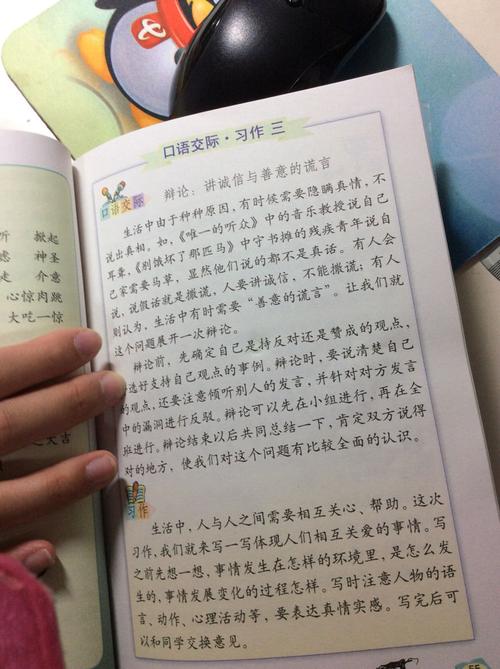 听 掀起
虑 神圣
走 介意
心惊肉跳
大吃一惊
之大吉
口语交际·习作 三
口语交际
辩论：讲诚信与善意的谎言
生活中由于种种原因，有时候需要隐瞒真情，不
说出真相。如，《唯一的听众》中的音乐教授说自己
耳聋，《别饿坏了那匹马》中守书摊的残疾青年说自
己家需要马草，显然他们说的都不是真话。有人会
说，说假话就是撒谎，人要讲诚信，不能撒谎；有人
则认为，生活中有时需要“善意的谎言”。让我们就
这个问题展开一次辩论。
辩论前，先确定自己是持反对还是赞成的观点，
选好支持自己观点的事例。辩论时，要说清楚自己
的观点，还要注意倾听别人的发言，并针对对方发言
中的漏洞进行反驳。辩论可以先在小组进行，再在全
班进行。辩论结束以后共同总结一下，肯定双方说得
对的地方，使我们对这个问题有比较全面的认识。
习作
生活中，人与人之间需要相互关心、帮助。这次
习作，我们就来写一写体现人们相互关爱的事情。写
之前先想一想，事情发生在怎样的环境里，是怎么发
生的，事情发展变化的过程怎样。写时注意人物的语
言、动作、心理活动等，要表达真情实感。写完后可
以和同学交换意见。
55